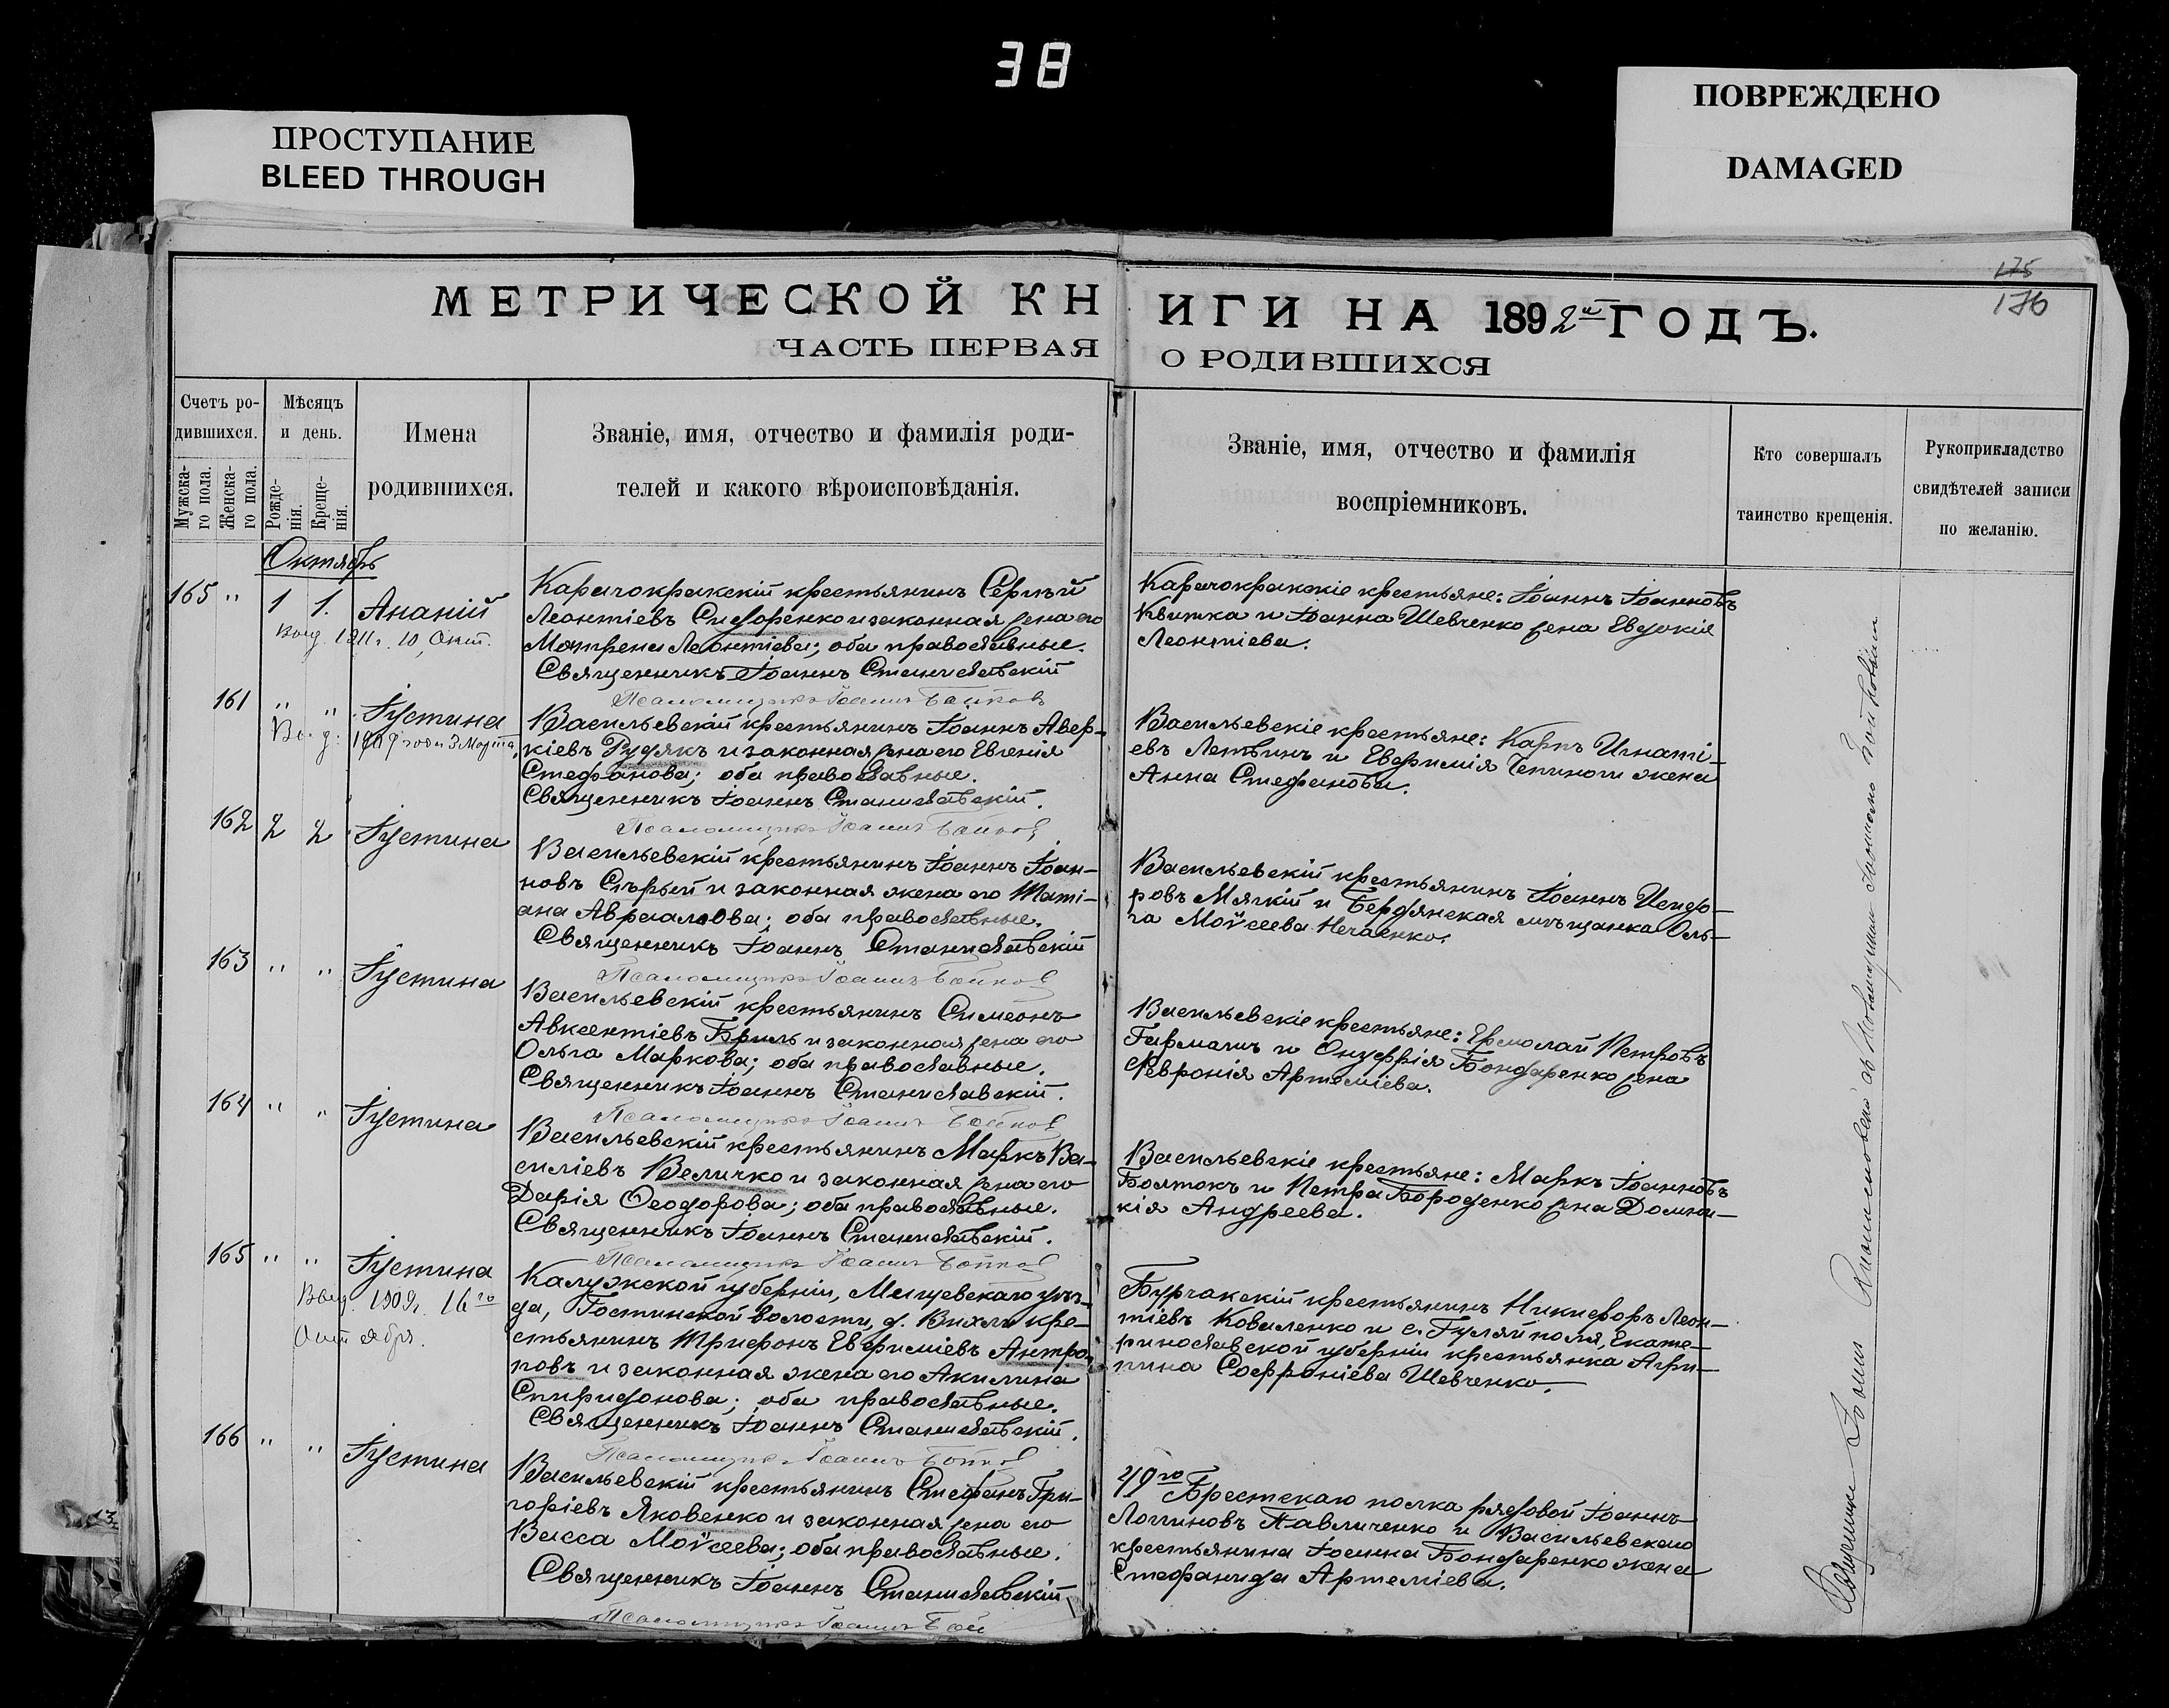 38
ПРОСТУПАНИЕ
BLEED THROUGH
ПОВРЕЖДЕНО
DAMAGED
175
176
МЕТРИЧЕСКОЙ КНИГИ НА 1892й ГОДЪ.
ЧАСТЬ ПЕРВАЯ О РОДИВШИХСЯ
Счетъ ро-
дившихся.
Мужска-
го пола.
Женска-
го пола.
Мѣсяцъ
и день.
Рожде-
нія.
Креще-
нія.
Имена
родившихся.
Званіе, имя, отчество и фамилія роди-
телей и какого вѣроисповѣданія.
Званіе, имя, отчество и фамилія
воспріемниковъ.
Кто совершалъ
таинство крещенія.
Рукоприкладство
свидѣтелей записи
по желанію.
Октябрь
165 " 1 1. Ананій
Выд. 1911г. 10, Окт.
Карачокракскій крестьянинъ Сергѣй
Леонтіевъ Сидоренко и законная жена его
Матрена Леонтіева; оба православные.
Священникъ Іоаннъ Станиславскій
Псаломщикъ Іоаннъ Бойков
Карачокракскіе крестьяне: Іоаннъ Іоанновъ
Квитка и Іоанна Шевченко жена Евдокія
Леонтіева.
161 " " Іустина
Выд: 1909 года 3 Марта
Васильевскій крестьянинъ Іоаннъ Авер-
кіевъ Рудякъ и законная жена его Евгенія
Стефанова; оба православные.
Священникъ Іоаннъ Станиславскій.
Псаломщикъ Іоаннъ Бойков
Васильевскіе крестьяне: Карпъ Игнаті-
евъ Летвинъ и Евфимія жена
Анна Стефанова.
162 2 2 Іустина
Васильевскій крестьянинъ Іоаннъ Іоан-
новъ Сѣрый и законная жена его Таті-
ана Авраамова; оба православные.
Священникъ Іоаннъ Станиславскій
Псаломщикъ Іоаннъ Бойков
Васильевскій крестьянинъ Іоаннъ Исидо-
ровъ Мягкій и Бердянская мѣщанка Оль-
га Моѵсеева Нечаенко.
163 " " Іустина
Васильевскій крестьянинъ Симеонъ
Авксентіевъ Бриль и законная жена его
Ольга Маркова; оба православные.
Священникъ Іоаннъ Станиславскій.
Псаломщикъ Іоаннъ Бойков
Васильевскіе крестьяне: Ермолай Петровъ
Гармашъ и Онуфрія Бондаренко жена
Февронія Артеміева.
164 " " Іустина
Васильевскій крестьянинъ Маркъ Ва-
силіевъ Величко и законная жена его
Дарія Ѳеодорова; оба православные.
Священникъ Іоаннъ Станиславскій.
Псаломщикъ Іоаннъ Бойков
Васильевскіе крестьяне: Маркъ Іоанновъ
Болтокъ и Петра Бороденко жена Домни-
кія Андреева.
165 " " Іустина
Выд. 1909г. 16го
Октября.
Калужской губерніи, Мещевскаго уѣз-
да, Гостинской волости, д. Вихли кре-
стьянинъ Трифонъ Евфиміевъ Антро-
повъ и законная жена его Акилина
Спиридонова; оба православные.
Священникъ Іоаннъ Станиславскій.
Псаломщикъ Іоаннъ Бойков
Бурчакскій крестьянинъ Никифоръ Леон-
тіевъ Коваленко и с. Гуляйполя, Екате-
ринославской губерніи крестьянка Агри-
пина Софроніева Шевченко.
166 " " Іустина
Васильевскій крестьянинъ Стефанъ Гри-
горіевъ Яковенко и законная жена его
Васса Моѵсеева; оба православные.
Священникъ Іоаннъ Станиславскій
Псаломщикъ Іоаннъ Бой
49го Брестскаго полка рядовой Іоаннъ
Логиновъ Павличенко и Васильевскаго
крестьянина Іоанна Бондаренко жена
Стефанида Артеміева.
Священникъ Іоаннъ Станиславскій съ Псаломщикомъ Іоанномъ Бойковымъ